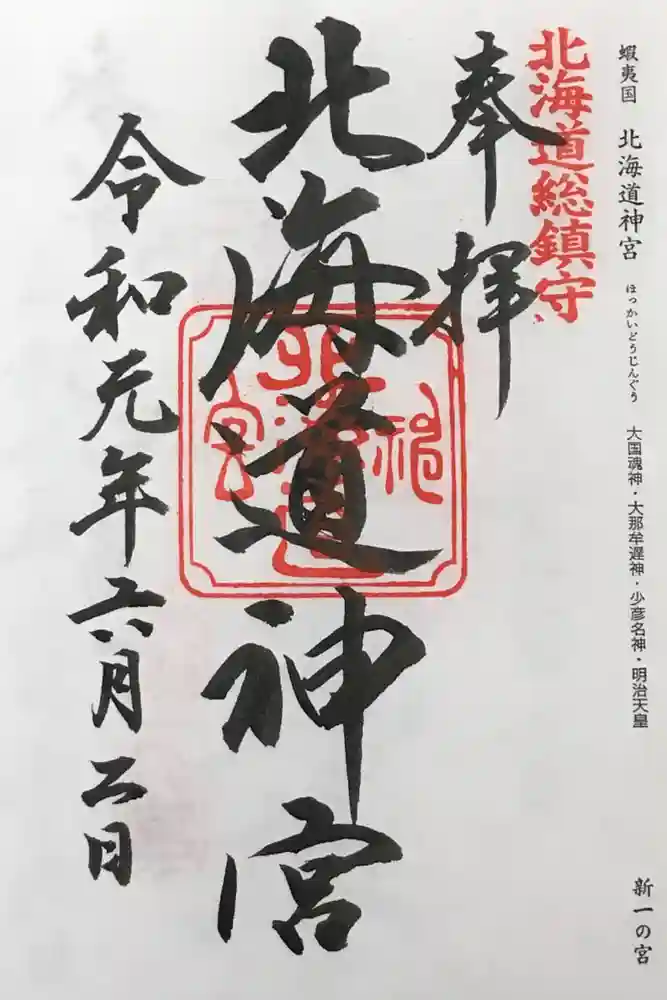 蝦夷国 北海道神宮 ほっかいどうじんぐう 大国魂神・大那牟遅神・少彦名神・明治天皇 新一の宮
北海道総鎮守
奉拝
北海道神宮
北海道神宮
令和元年六月二日